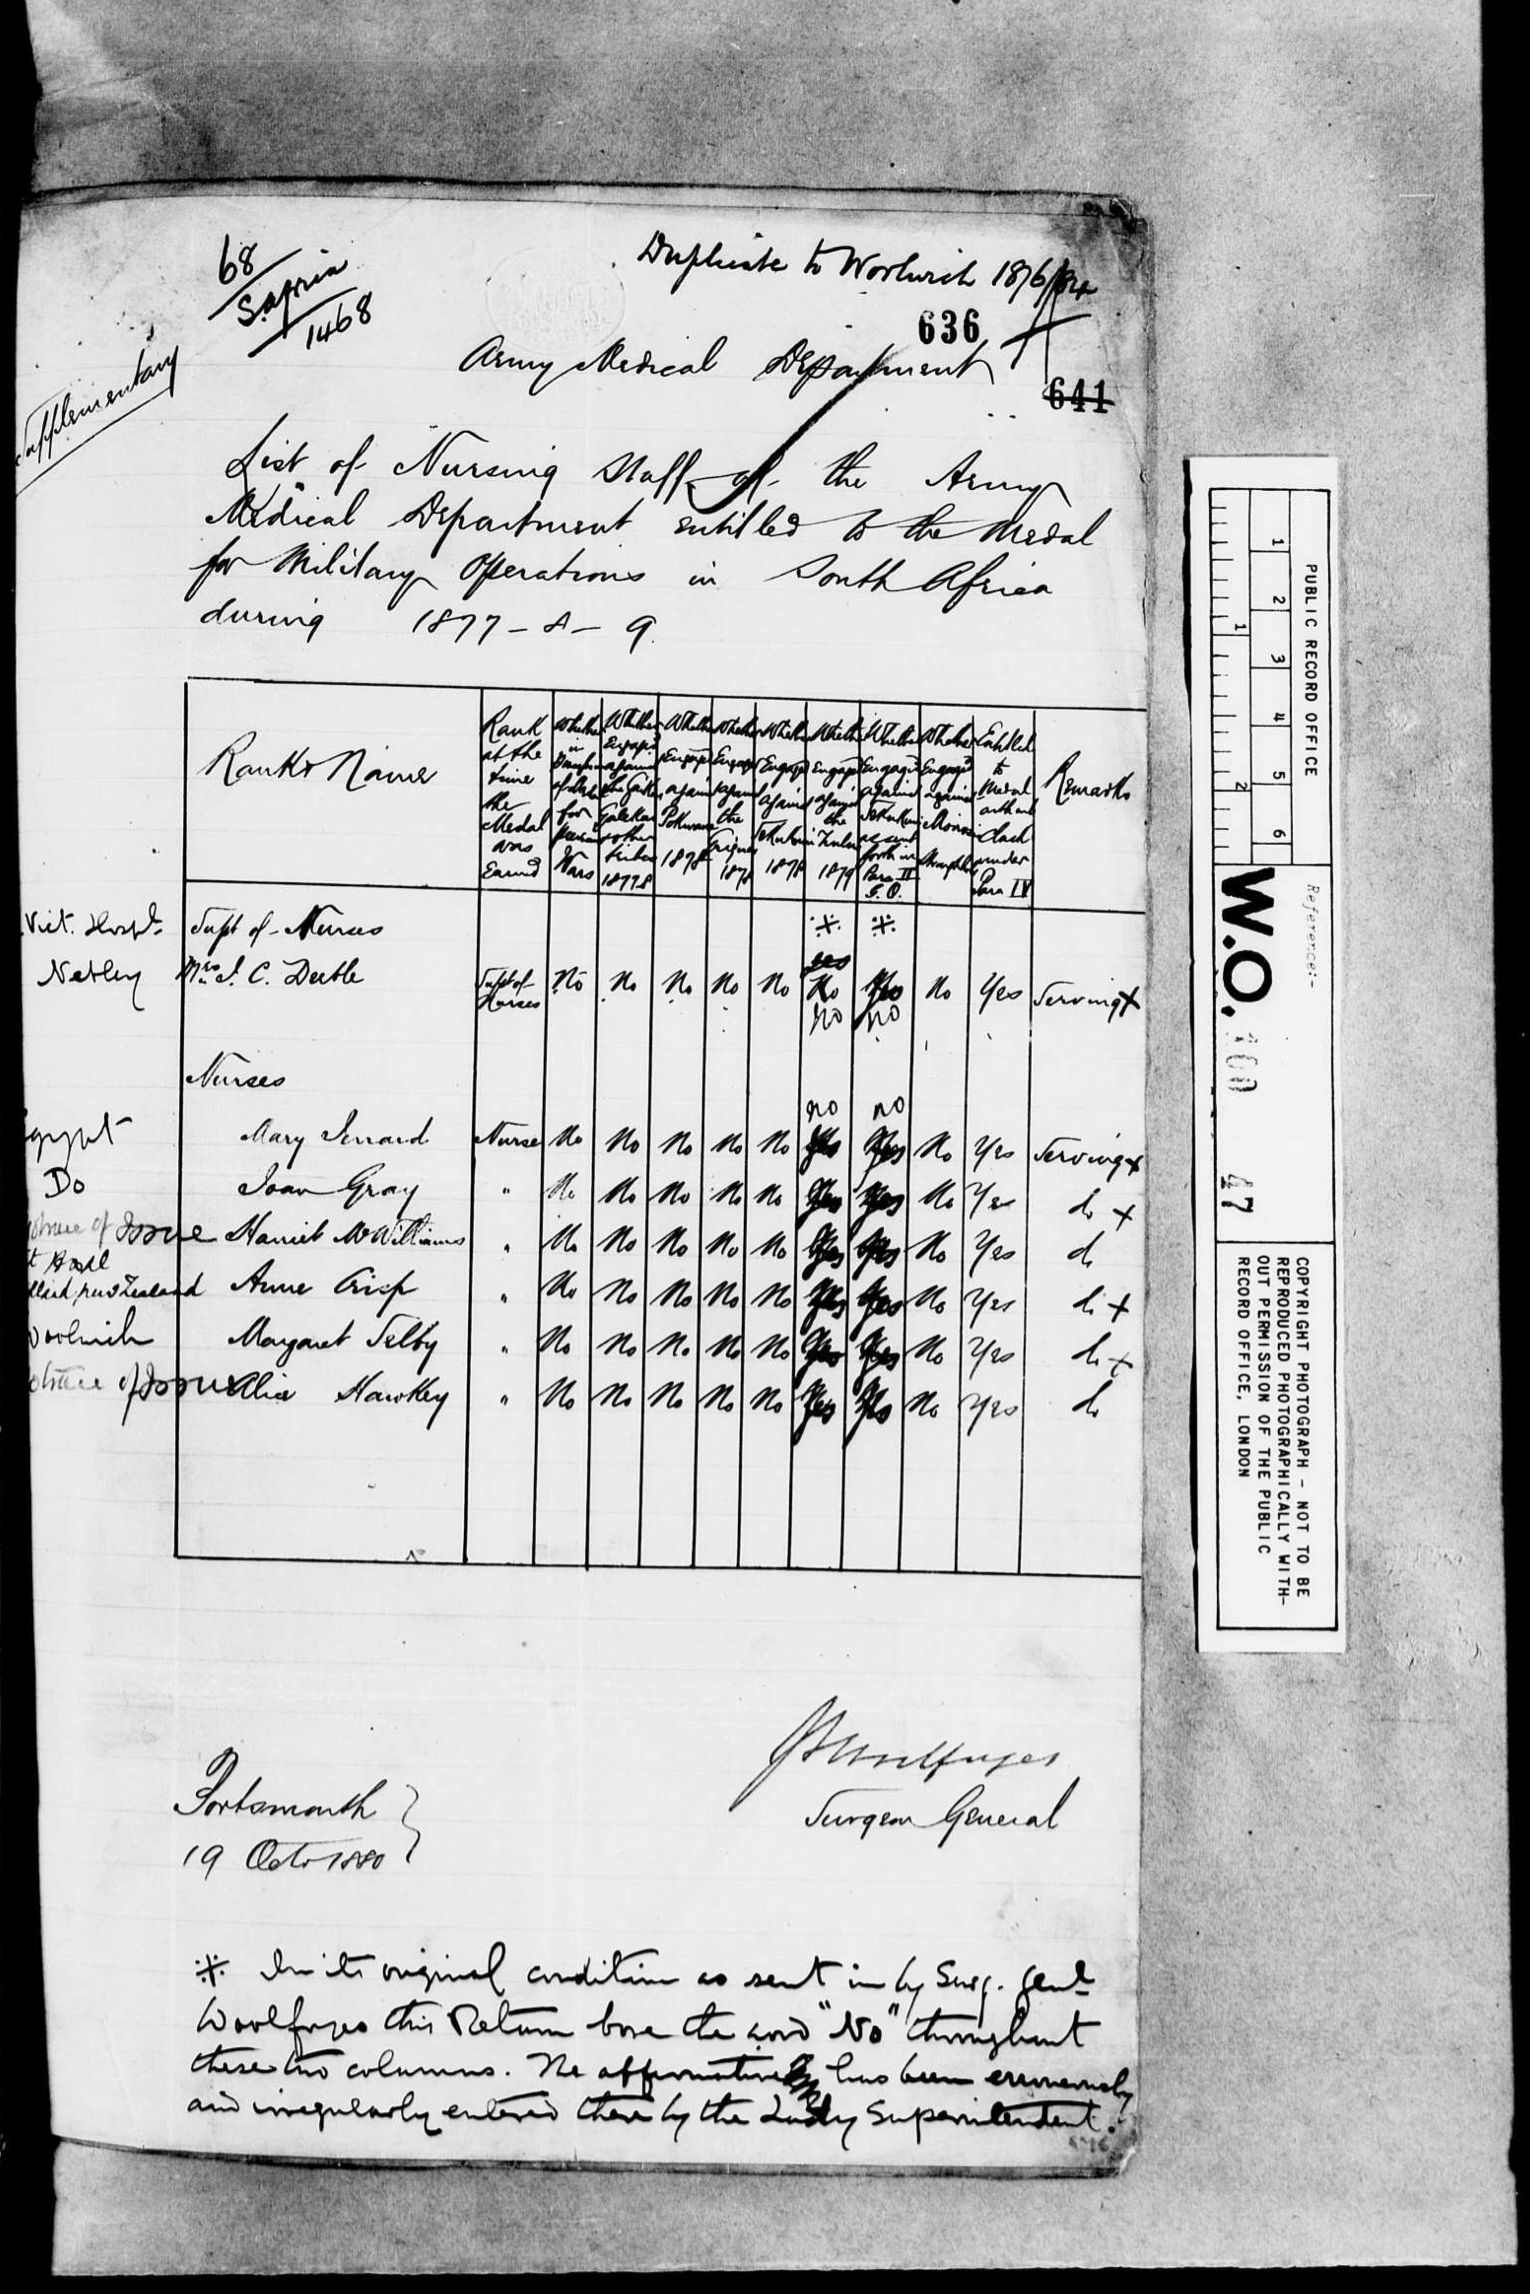 68
S. Africa
1468
Supplementary
Duplicate to Woolwich 1876/84
636
641
Army Medical Department
List of Nursing Staff of the Army
Medical Department entitled to the Medal
for Military Operations in South Africa
during 1877-8-9
Rank & Name
Rank at the time the Medal was Earned
Whether in of for Wars
Whether Engaged against the Gaikas Galekas & other tribes 1877 8
Whether Engaged against Pokwane 1878
Whether Engaged against the Griquas 1878
Whether Engaged against Sekukuni 1878
Whether Engaged against the Zulus 1879
Whether Engaged against Sekukuni as set forth in Para II G.O.
Whether Engaged against Moirosi Stronghold
Entitled to Medal without Clasp under Para IV
Remarks
Vict. Hospl. Supt of Nurses ※ ※
yes
Netley Mrs J. C. Deeble Supt of Nurses No No No No No No No No Yes Serving +
no no
Nurses
no no
Egypt Mary Jerrard Nurse No No No No No Yes Yes No Yes Serving +
Do Joan Gray " No No No No No Yes Yes No Yes do +
of Issue Harriet McWilliams " No No No No No Yes Yes No Yes do
New Zealand Anne Crisp " No No No No No Yes Yes No Yes do +
Woolwich Margaret Selby " No No No No No Yes Yes No Yes do +
of Issue Alice Hawkley " No No No No No Yes Yes No Yes do
J Woolfryes
Surgeon General
Portsmouth
19 Octr 1880
※ In its original condition as sent in by Surg. Genl
Woolfryes this Return bore the word "No" throughout
these two columns. The affirmative has been erroneously
and irregularly entered there by the Lady Superintendent.
PUBLIC RECORD OFFICE
1 2 3 4 5 6
1 2
Reference:-
W.O. 100 47
COPYRIGHT PHOTOGRAPH - NOT TO BE
REPRODUCED PHOTOGRAPHICALLY WITH-
OUT PERMISSION OF THE PUBLIC
RECORD OFFICE, LONDON